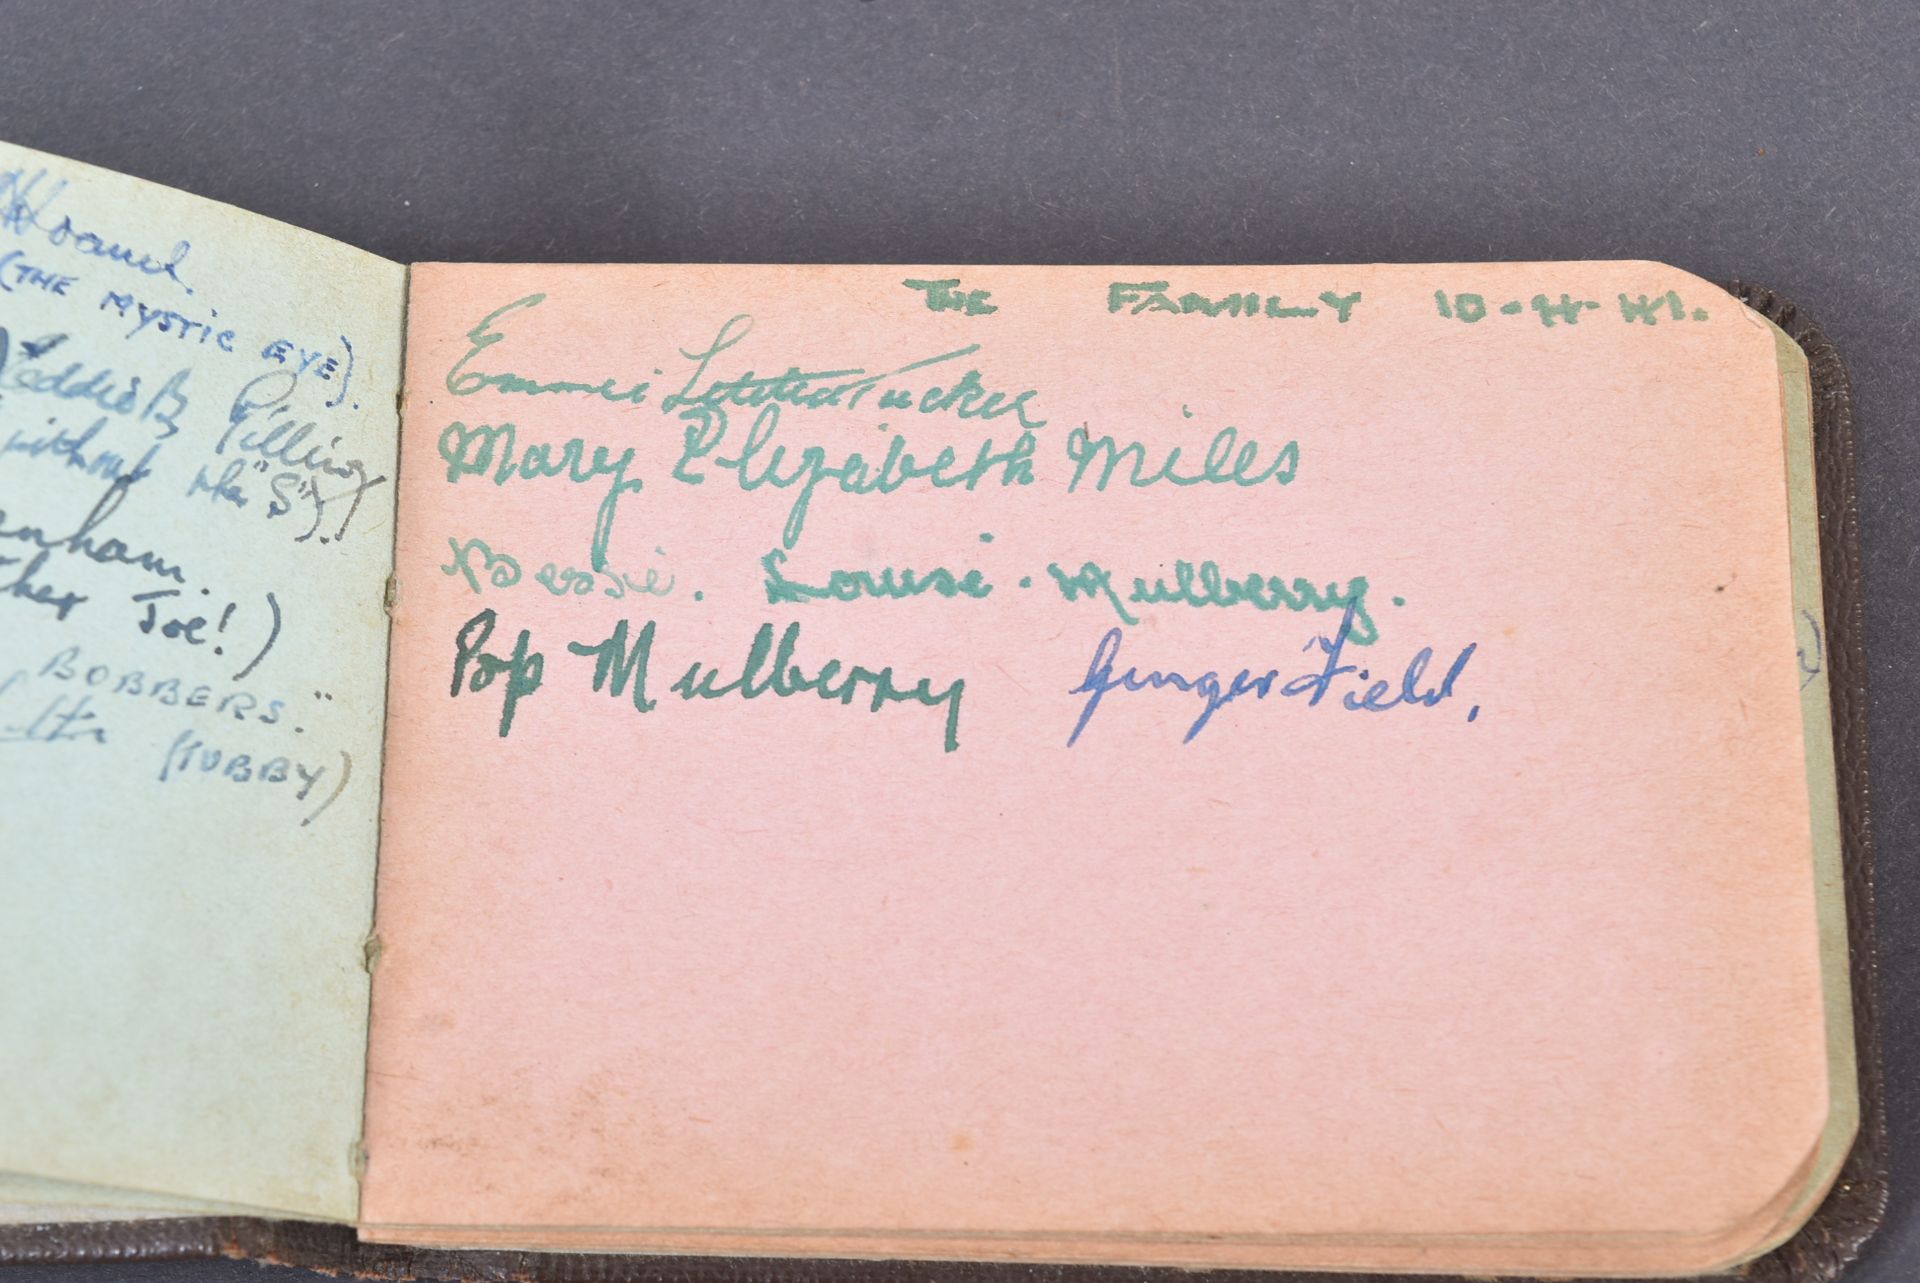 (THE MYSTIC EYE).
Pilling
without the "S").
enham.
ther Joe!)
BOBBERS."
(TUBBY)
THE FAMILY 10-4-41.
Emmei Lottea Tucker
Mary Elizabeth Miles
Bessie. Louise. Mulberry.
Pop Mulberry Ginger Field.